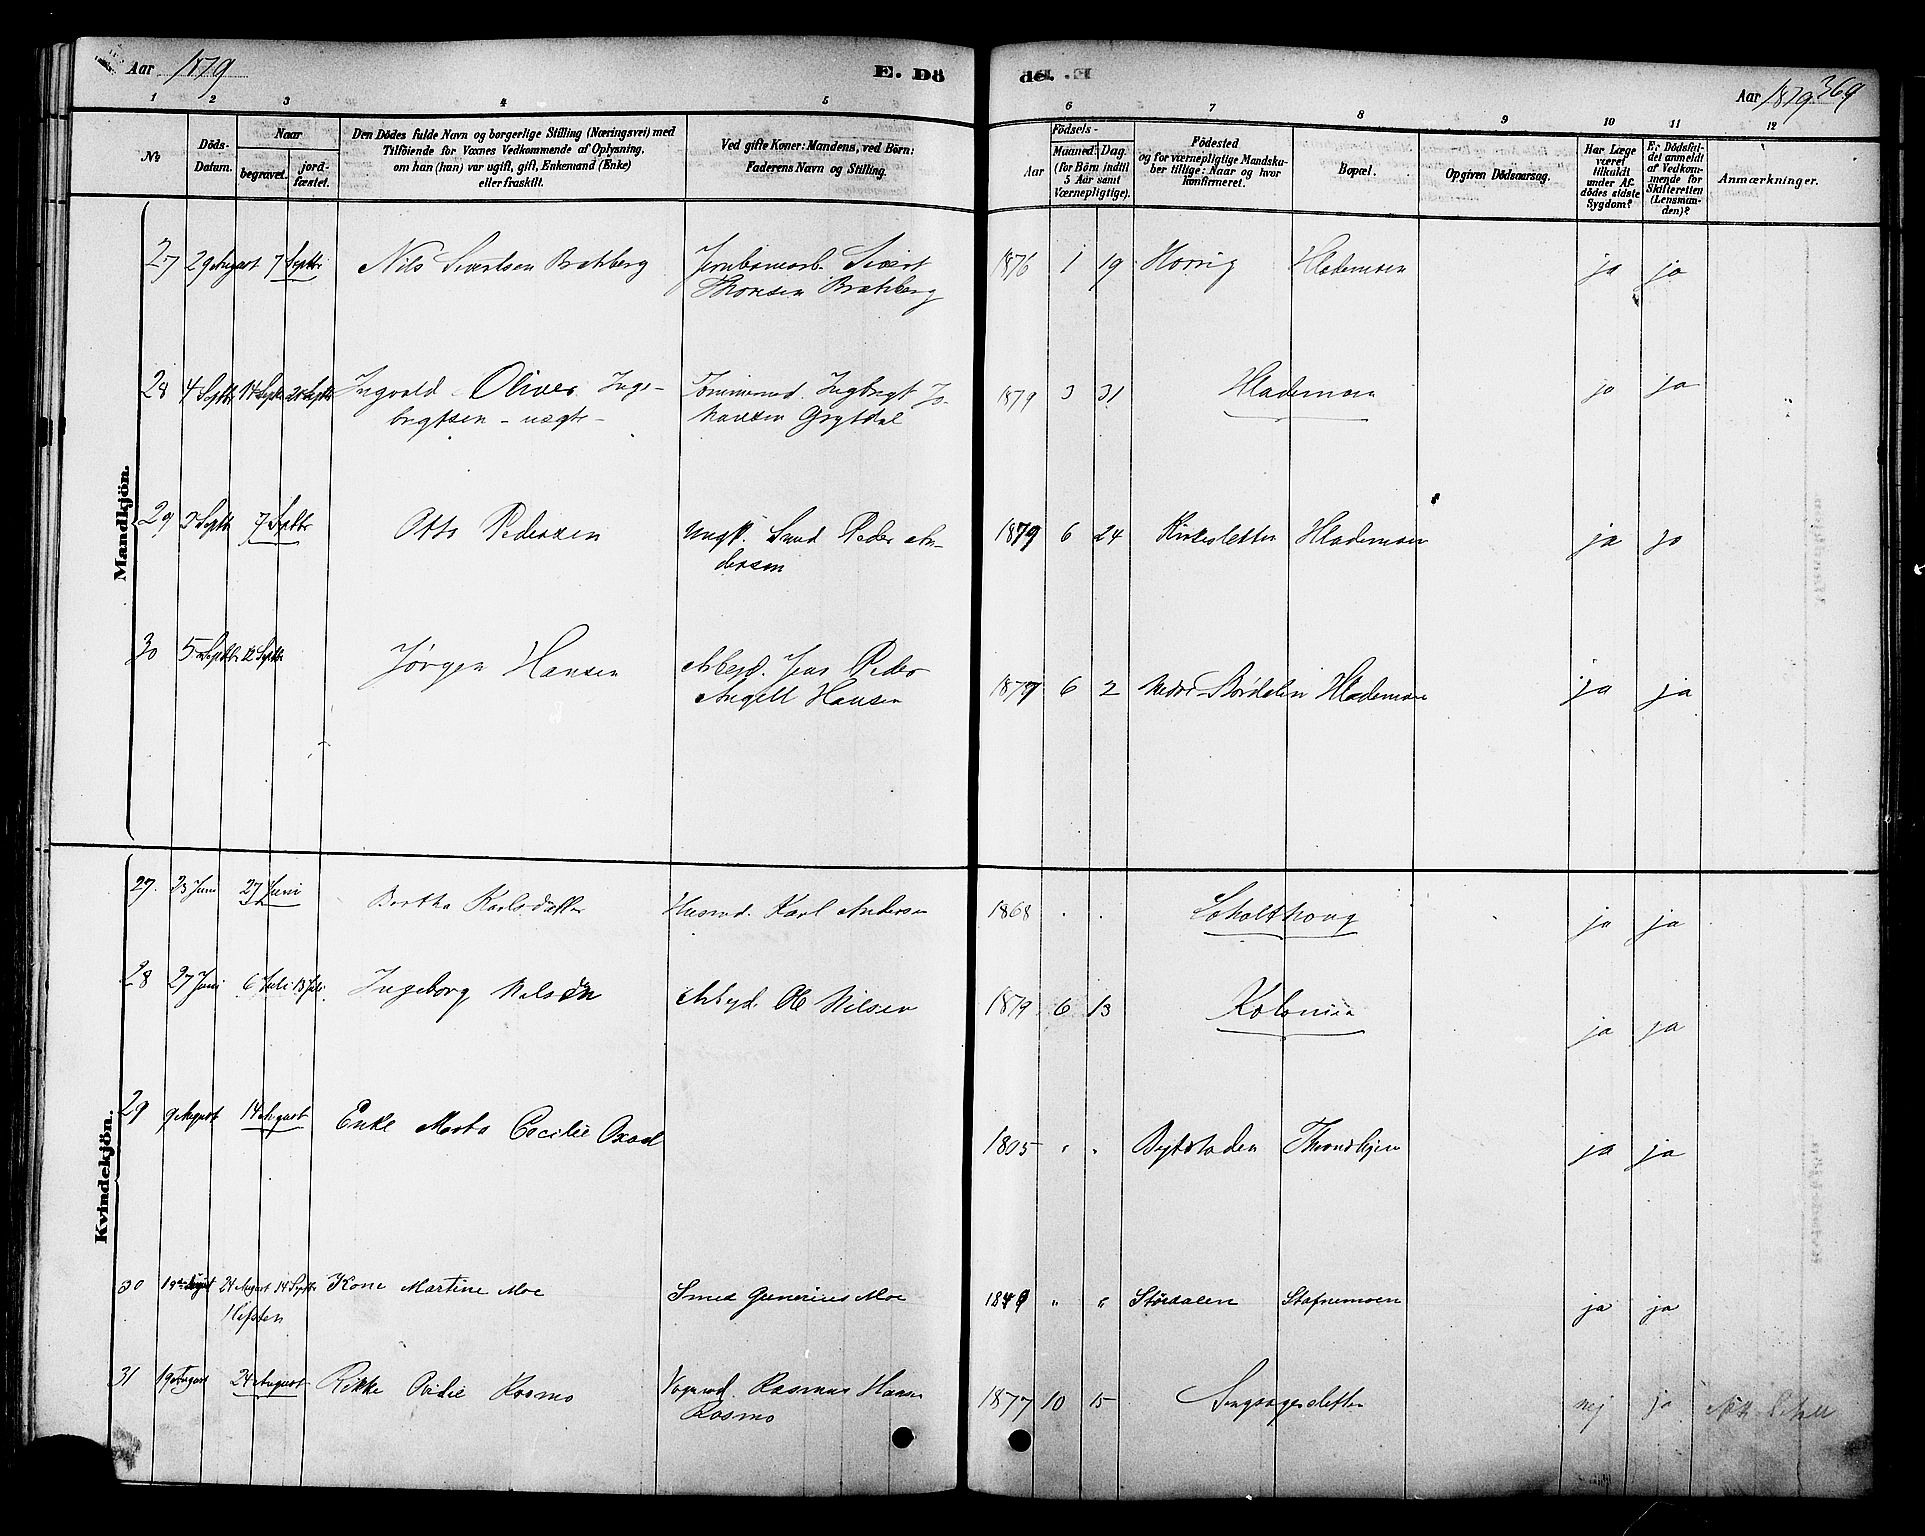 Aar 1879
E. Dö
de. E.
Aar 1879 369
1 2 3 4 5 6 7 8 9 10 11 12
No
Döds-
Datum.
Naar
begravet.
jord-
fæstet.
Den Dödes fulde Navn og borgerlige Stilling (Næringsvei) med
Tilföiende for Voxnes Vedkommende af Oplysning,
om han (hun) var ugift, gift, Enkemand (Enke)
eller fraskilt.
Ved gifte Koner: Mandens, ved Börn:
Faderens Navn og Stilling.
Födsels-
Aar
Maaned. Dag.
(for Börn indtil
5 Aar samt
Værnepligtige).
Födested
og for værnepligtige Mandska-
ber tillige: Naar og hvor
konfirmeret.
Bopæl.
Opgiven Dödsaarsag.
Har Læge
været
tilkaldt
under Af-
dödes sidste
Sygdom?
Er Dödsfal-
det anmeldt
af Vedkom-
mende for
Skifteretten
(Lensman-
den)?
Anmærkninger.
Mandkjön.
27 29 August 7 Septbr Nils Sivertsen Brakberg Jernbanearb. Sivert 1876 1 19 Horrig Hlademoen ja ja
Thonsen Brakberg
28 4 Septbr 14 Septbr 20 Septbr Ingvald Oliver Inge- Tømmermd. Ingbrigt Jo- 1879 3 31 Hlademoen ja ja
brigtsen - uægte - hansen Grytdal
29 3 Septbr 7 Septbr Otto Pedersen Ungk. Smed Peder An- 1879 6 24 Kirkesletten Hlademoen ja ja
dersen
30 5 Septbr 12 Septbr Jørgen Hansen Arbejd. Jens Peder 1877 6 2 Nedre Størdalen Hlademoen ja ja
Angell Hansen
Kvindekjön.
27. 23 Juni 27 Juni Bertha Karlsdatter Husmd. Karl Andersen 1868 . . ja ja
28 27 Juni 6 Juli 13 Juli Ingeborg Nilsen Arbejd. Ole Nilsen 1879 6 13 Kolonien ja ja
29 9 August 14 August Enke Marta Cecilie 1805 " " Bytstaden Throndhjem ja ja
30 19 August 24 August 14 Septbr Kone Martine Moe Smed Gunerius Moe " " Størdalen Stafnemoen ja ja
31 19 August 24 August Rikke Kosmo Vognmd. Rasmus Hansen 1877 10 15 Singsagersletten nej ja
Kosmo